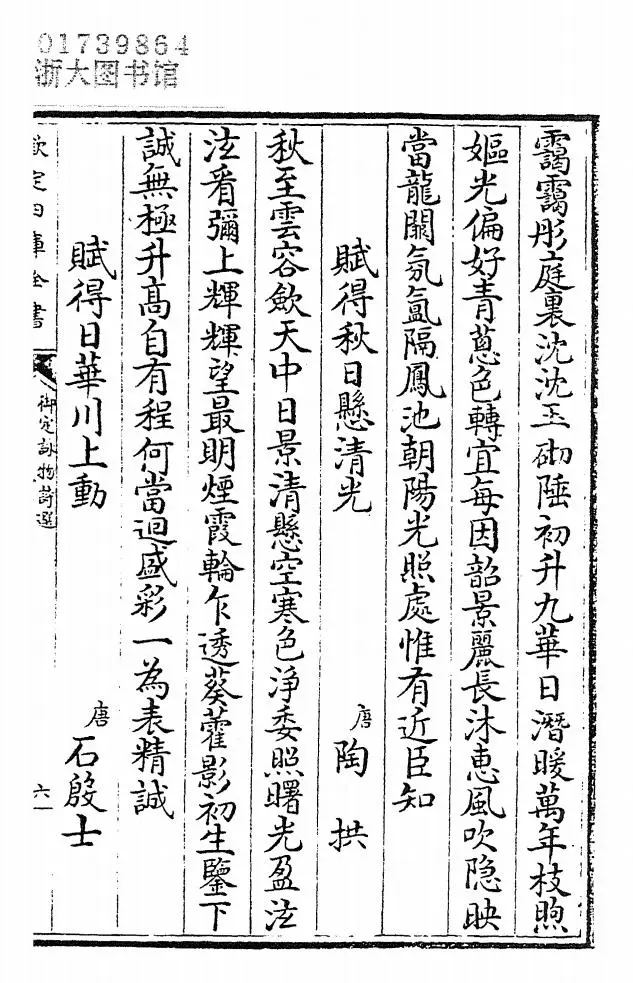 01739864
浙大图书馆
靄靄彤庭裏沈沈玉砌陲初升九華日潛暖萬年枝煦
嫗光偏好青蔥色轉宜每因韶景麗長沐惠風吹隐映
當龍闕氛氲隔鳳池朝陽光照處惟有近臣知
賦得秋日懸清光 唐 陶拱
秋至雲容歛天中日景清懸空寒色淨委照曙光盈泫
泫看彌上輝輝望最明煙霞輪乍透葵藿影初生鑒下
誠無極升髙自有程何當迴盛彩一為表精誠
賦得日華川上動 唐 石殷士
欽定四庫全書 御定詠物詩選 六一